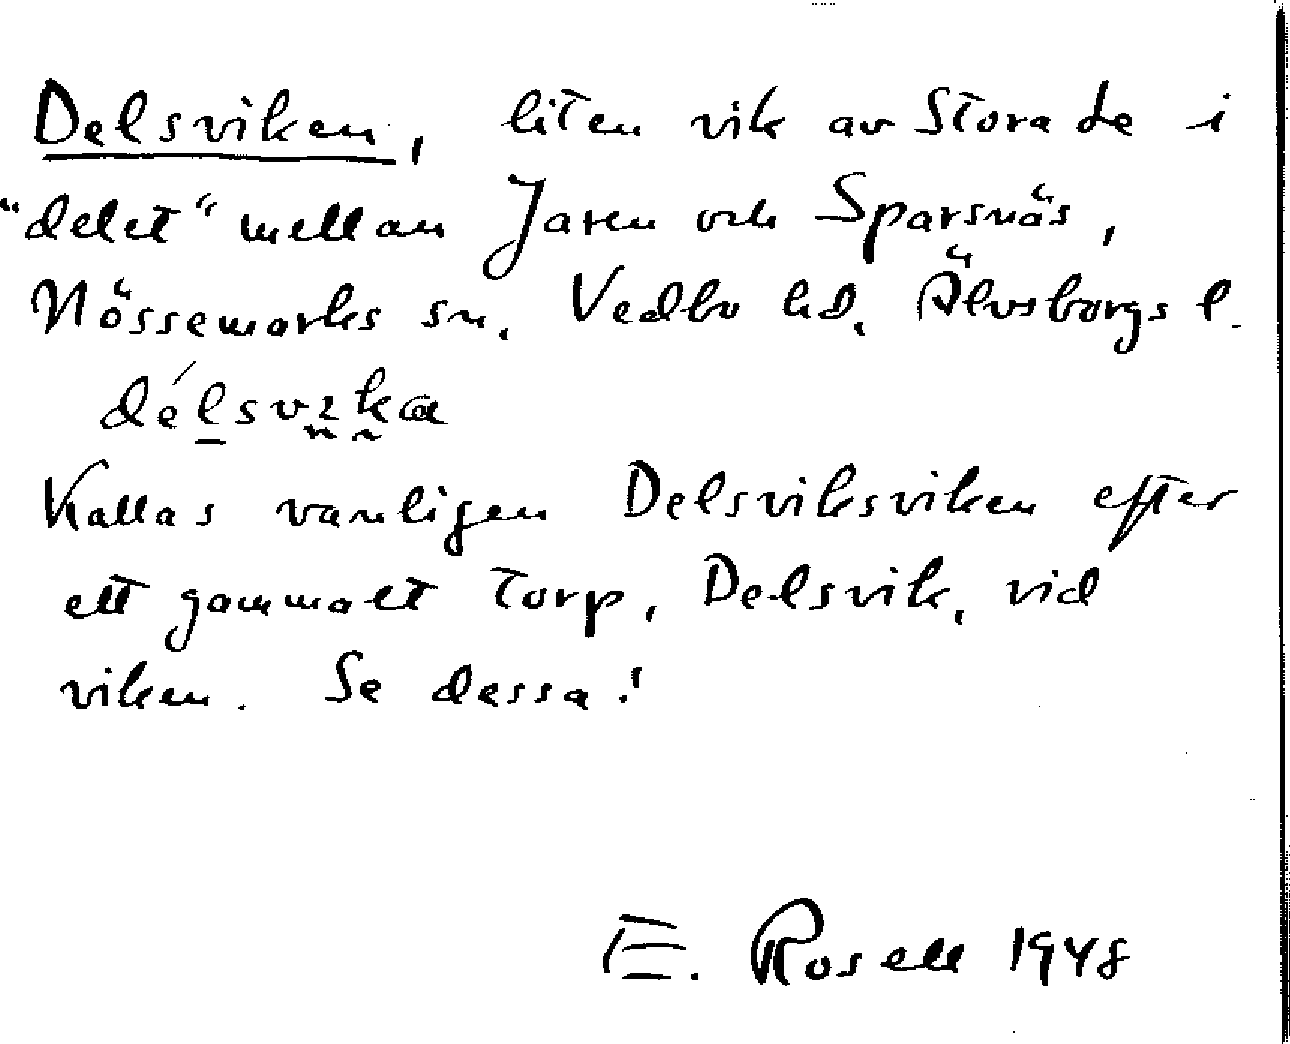 Delsviken, liten vik av Stora Le i
"delet" mellan Jaren och Sparsnäs,
Nössemarks sn. Vedbo hd. Älvsborgs l.
Kallas vanligen Delsviksviken efter
ett gammalt torp, Delsvik, vid
viken. Se dessa!
E. Rosell 1948